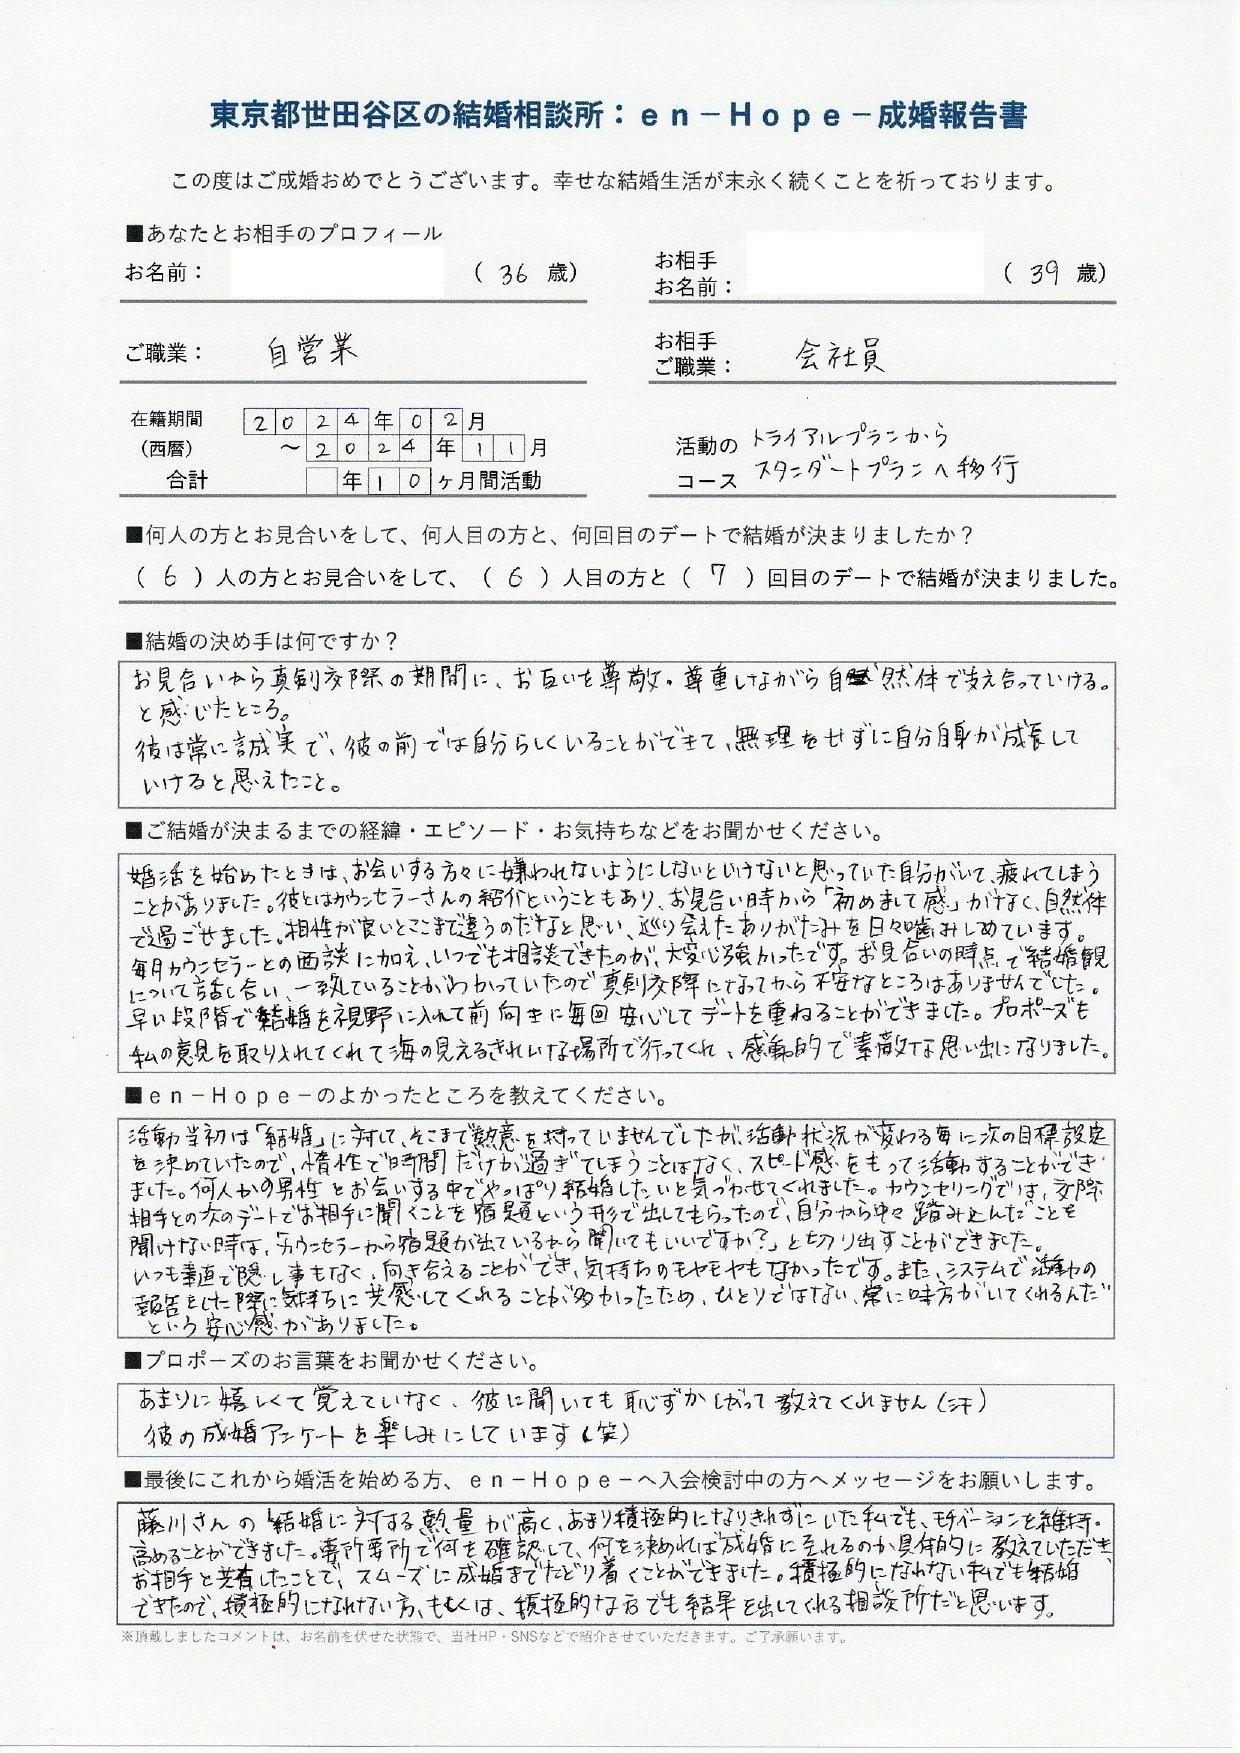 東京都世田谷区の結婚相談所：ｅｎ－Ｈｏｐｅ－成婚報告書
この度はご成婚おめでとうございます。幸せな結婚生活が末永く続くことを祈っております。
■あなたとお相手のプロフィール
お名前： （ 36 歳）
お相手
お名前： （ 39 歳）
ご職業： 自営業
お相手
ご職業： 会社員
在籍期間 2024年02月
（西暦） ～2024年11月
合計 年10ヶ月間活動
活動の トライアルプランから
コース スタンダートプランへ移行
■何人の方とお見合いをして、何人目の方と、何回目のデートで結婚が決まりましたか？
（ 6 ）人の方とお見合いをして、（ 6 ）人目の方と（ 7 ）回目のデートで結婚が決まりました。
■結婚の決め手は何ですか？
お見合いから真剣交際の期間に、お互いを尊敬・尊重しながら自然体で支え合っていける。
と感じたところ。
彼は常に誠実で、彼の前では自分らしくいることができて、無理をせずに自分自身が成長して
いけると思えたこと。
■ご結婚が決まるまでの経緯・エピソード・お気持ちなどをお聞かせください。
婚活を始めたときは、お会いする方々に嫌われないようにしないといけないと思っていた自分がいて、疲れてしまう
ことがありました。彼とはカウンセラーさんの紹介ということもあり、お見合い時から「初めまして感」がなく、自然体
で過ごせました。相性が良いとここまで違うのだなと思い、巡り会えたありがたみを日々噛みしめています。
毎月カウンセラーとの面談に加え、いつでも相談できたのが、大変心強かったです。お見合いの時点で結婚観
について話し合い、一致していることがわかっていたので真剣交際になってから不安なところはありませんでした。
早い段階で結婚を視野に入れて前向きに毎回安心してデートを重ねることができました。プロポーズも
私の意見を取り入れてくれて海の見えるきれいな場所で行ってくれ、感動的で素敵な思い出になりました。
■ｅｎ－Ｈｏｐｅ－のよかったところを教えてください。
活動当初は「結婚」に対して、そこまで熱意を持っていませんでしたが、活動状況が変わる毎に次の目標設定
を決めていたので、惰性で時間だけが過ぎてしまうことはなく、スピード感をもって活動することができ
ました。何人かの男性とお会いする中でやっぱり結婚したいと気づかせてくれました。カウンセリングでは、交際
相手との次のデートでお相手に聞くことを宿題という形で出してもらったので、自分から中々踏み込んだことを
聞けない時は、「カウンセラーから宿題が出ているから聞いてもいいですか？」と切り出すことができました。
いつも素直で隠し事もなく、向き合えることができ、気持ちのモヤモヤもなかったです。また、システムで活動の
報告をした際に気持ちに共感してくれることが多かったため、ひとりではない、常に味方がいてくれるんだ
という安心感がありました。
■プロポーズのお言葉をお聞かせください。
あまりに嬉しくて覚えていなく、彼に聞いても恥ずかしがって教えてくれません（汗）
彼の成婚アンケートを楽しみにしています（笑）
■最後にこれから婚活を始める方、ｅｎ－Ｈｏｐｅ－へ入会検討中の方へメッセージをお願いします。
藤川さんの結婚に対する熱量が高く、あまり積極的になりきれずにいた私でも、モチベーションを維持・
高めることができました。要所要所で何を確認して、何を決めれば成婚に至れるのか具体的に教えていただき、
お相手と共有したことで、スムーズに成婚までたどり着くことができました。積極的になれない私でも結婚
できたので、積極的になれない方、もしくは、積極的な方でも結果を出してくれる相談所だと思います。
※頂戴しましたコメントは、お名前を伏せた状態で、当社HP・SNSなどで紹介させていただきます。ご了承願います。